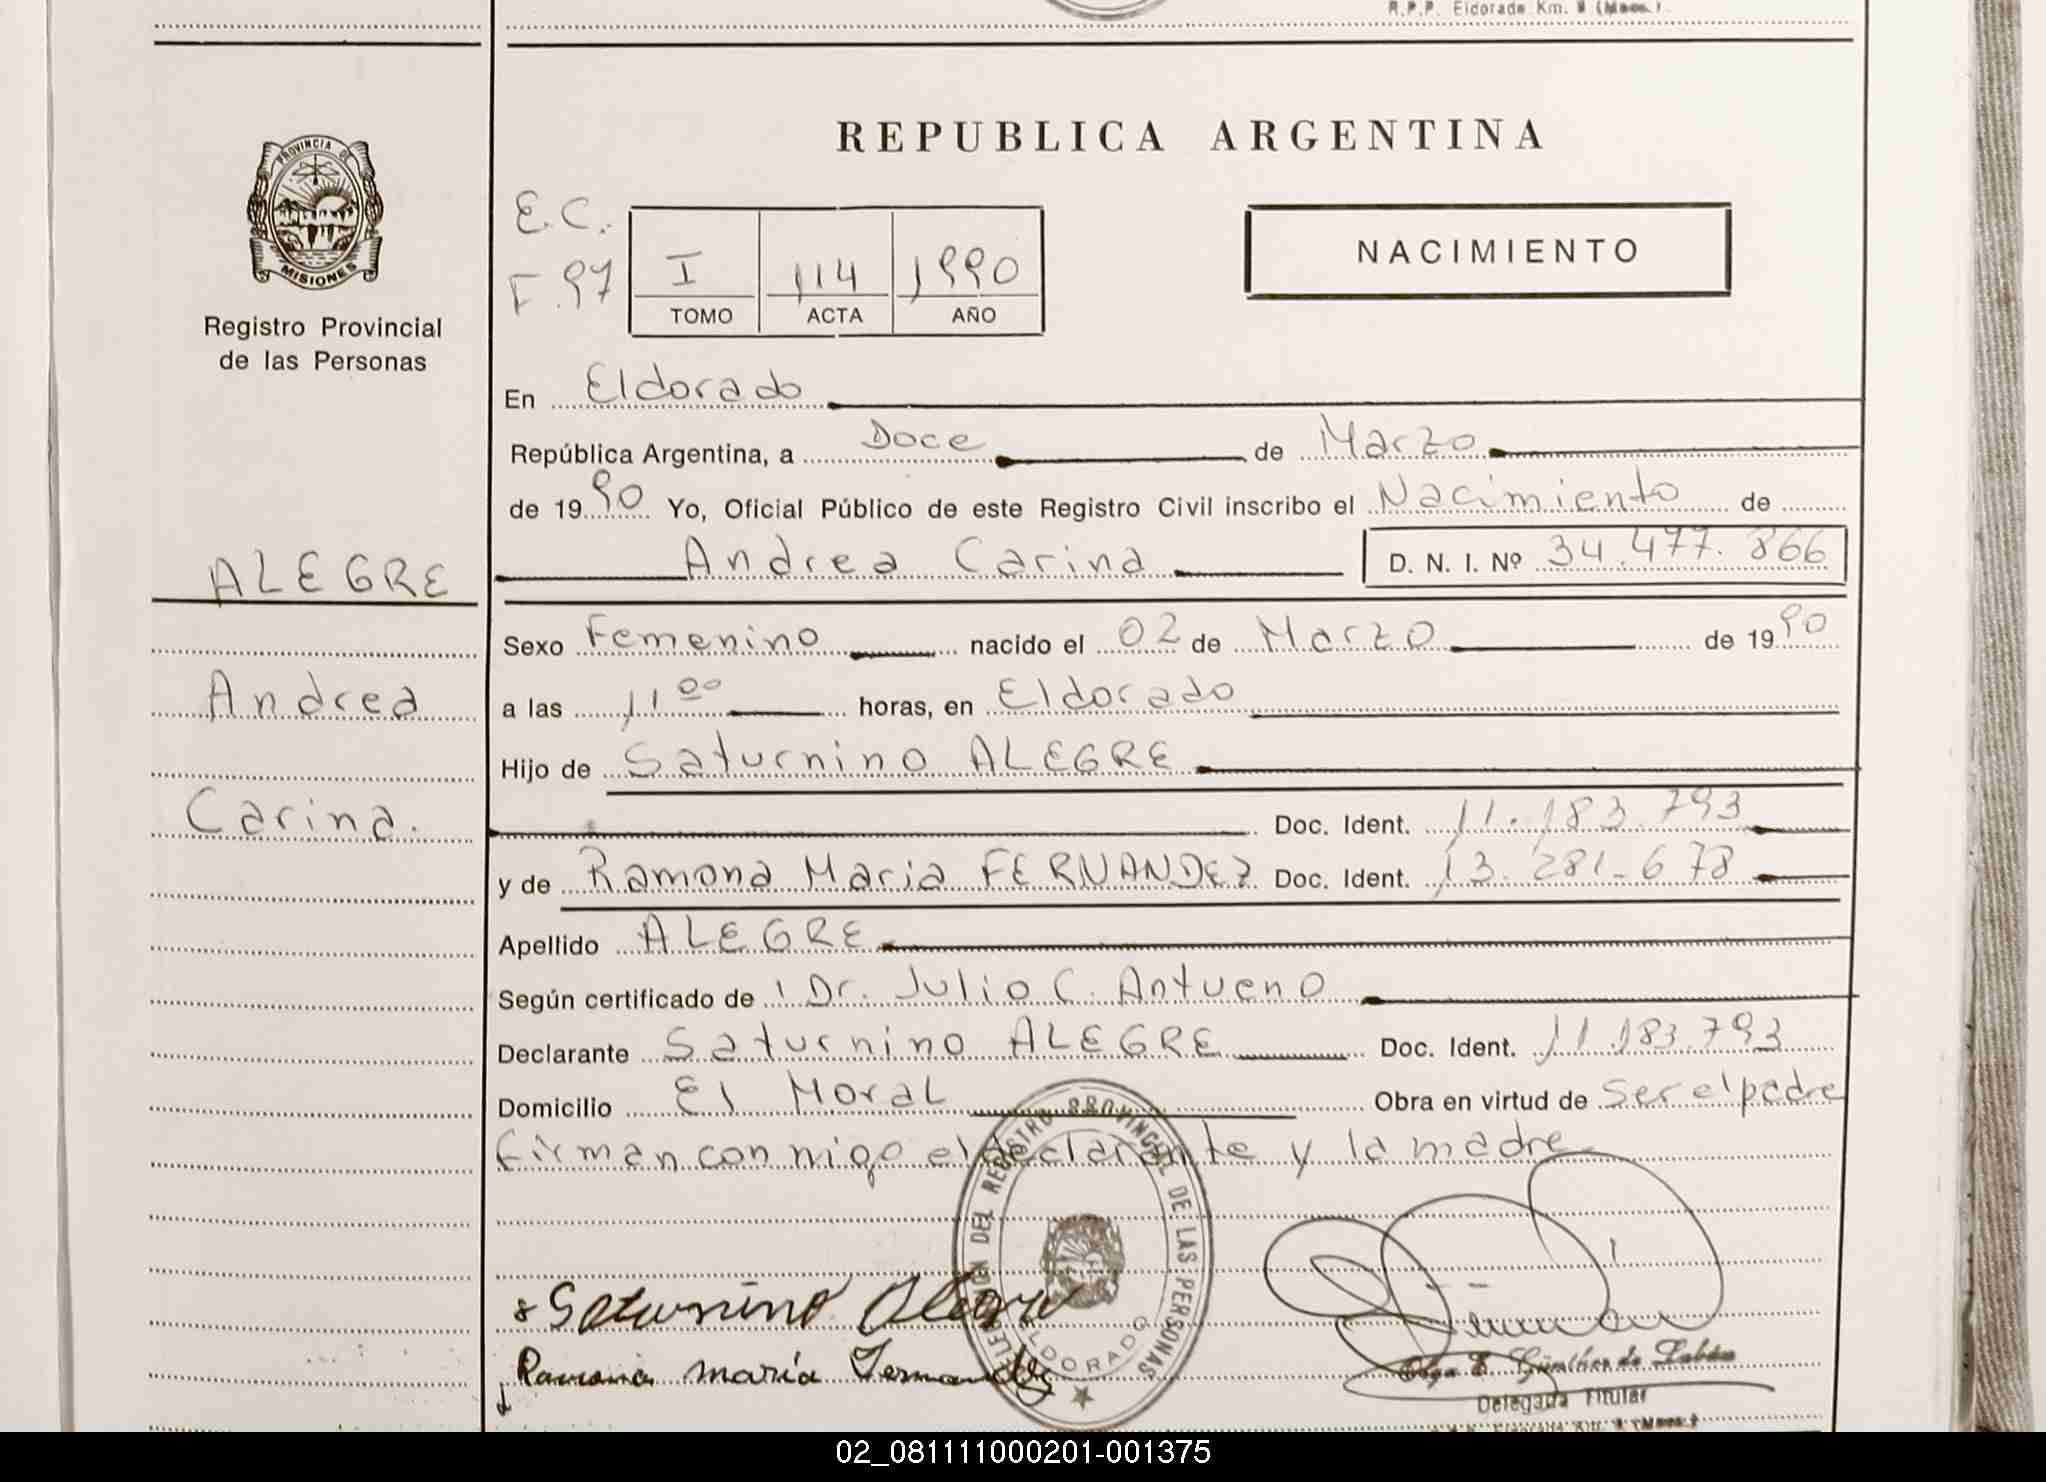 R.P.P. Eldorado Km. 9 (Mnes.)
REPUBLICA ARGENTINA
PROVINCIA DE
MISIONES
Registro Provincial
de las Personas
E.C.
F. 97
I 114 1990
TOMO ACTA AÑO
NACIMIENTO
En Eldorado
República Argentina, a Doce de Marzo
de 1990 Yo, Oficial Público de este Registro Civil inscribo el Nacimiento de
Andrea Carina D. N. I. Nº 34.477.866
ALEGRE
Andrea
Carina.
Sexo Femenino nacido el 02 de Marzo de 1990
a las 11⁰⁰ horas, en Eldorado
Hijo de Saturnino ALEGRE
Doc. Ident. 11.183.793
y de Ramona Maria FERNANDEZ Doc. Ident. 13.281.678
Apellido ALEGRE
Según certificado de Dr. Julio C. Antueno
Declarante Saturnino ALEGRE Doc. Ident. 11.183.793
Domicilio El Moral Obra en virtud de ser el padre
firman con migo el declarante y la madre
DEL REGISTRO PROVINCIAL DE LAS PERSONAS
ELDORADO
Saturnino Alegre
Ramona maría Fernandez
Olga E. Günther de
Delegada Titular
02_081111000201-001375